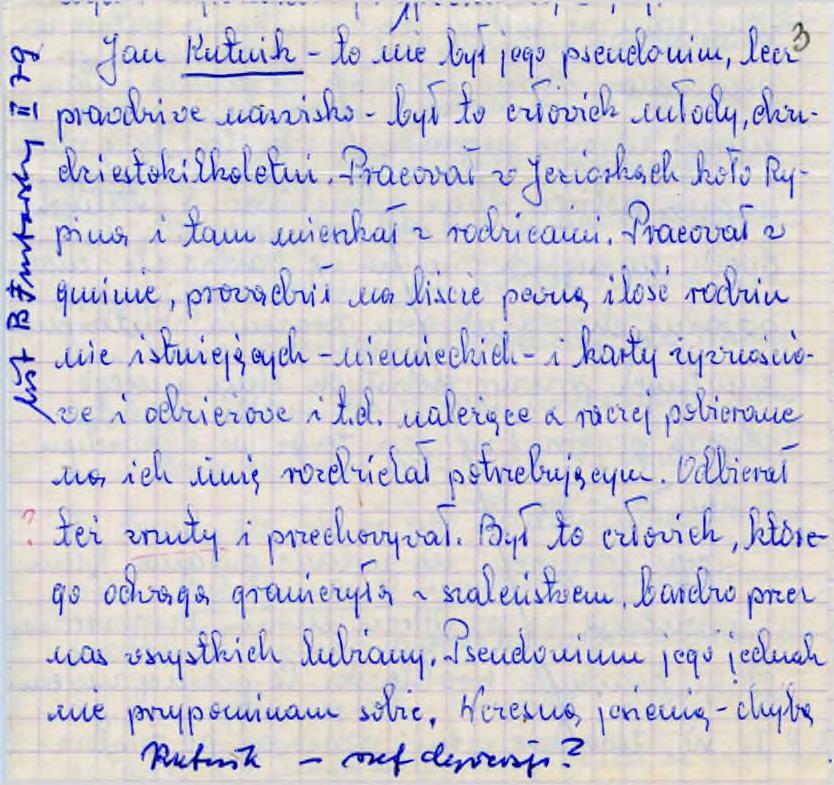 3
Jan Kutnik - to nie był jego pseudonim, lecz
prawdziwe nazwisko - był to człowiek młody, dwu-
dziestokilkoletni. Pracował w Jeziorkach koło Ry-
pina i tam mieszkał z rodzicami. Pracował w
gminie, prowadził na liście pewną ilość rodzin
nie istniejących - niemieckich - i karty żywnościo-
we i odzieżowe i t.d. należące a raczej pobierane
na ich imię rozdzielał potrzebującym. Odbierał
? też zrzuty i przechowywał. Był to człowiek, które-
go odwaga graniczyła z szaleństwem, bardzo przez
nas wszystkich lubiany. Pseudonimu jego jednak
nie przypominam sobie. Wczesną jesienią - chyba
Kutnik - szef dywersji?
list B. II 79